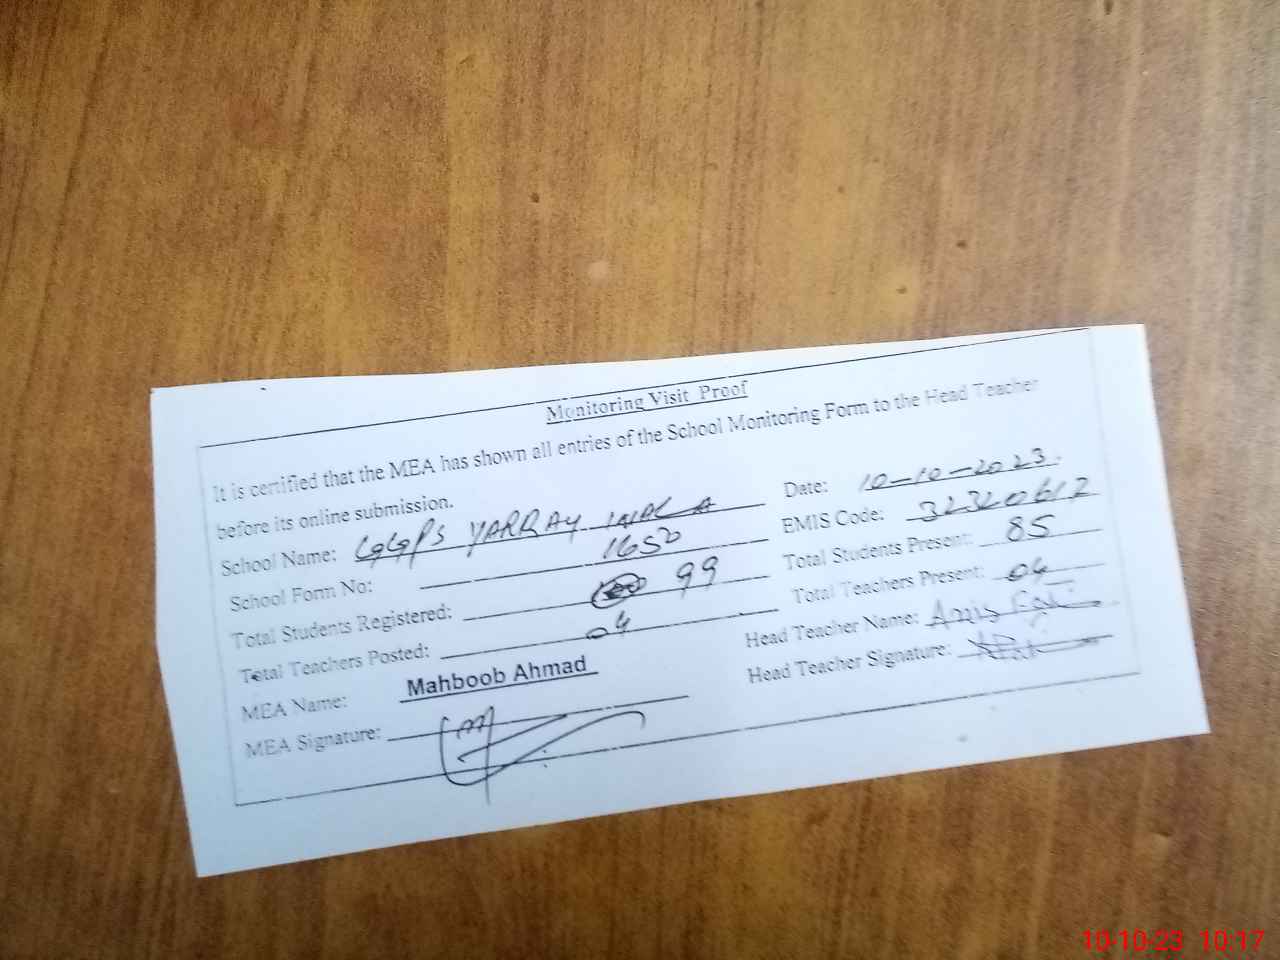 Monitoring Visit Proof
It is certified that the MEA has shown all entries of the School Monitoring Form to the Head Teacher
before its online submission.
Date: 10-10-2023.
School Name: GGPS YARRAY WALA
EMIS Code: 32320612
School Form No: 1650
Total Students Present: 85
Total Students Registered: 99
Total Teachers Present: 04
Total Teachers Posted: 04
Head Teacher Name: Anis
MEA Name: Mahboob Ahmad
Head Teacher Signature:
MEA Signature:
10-10-23 10:17